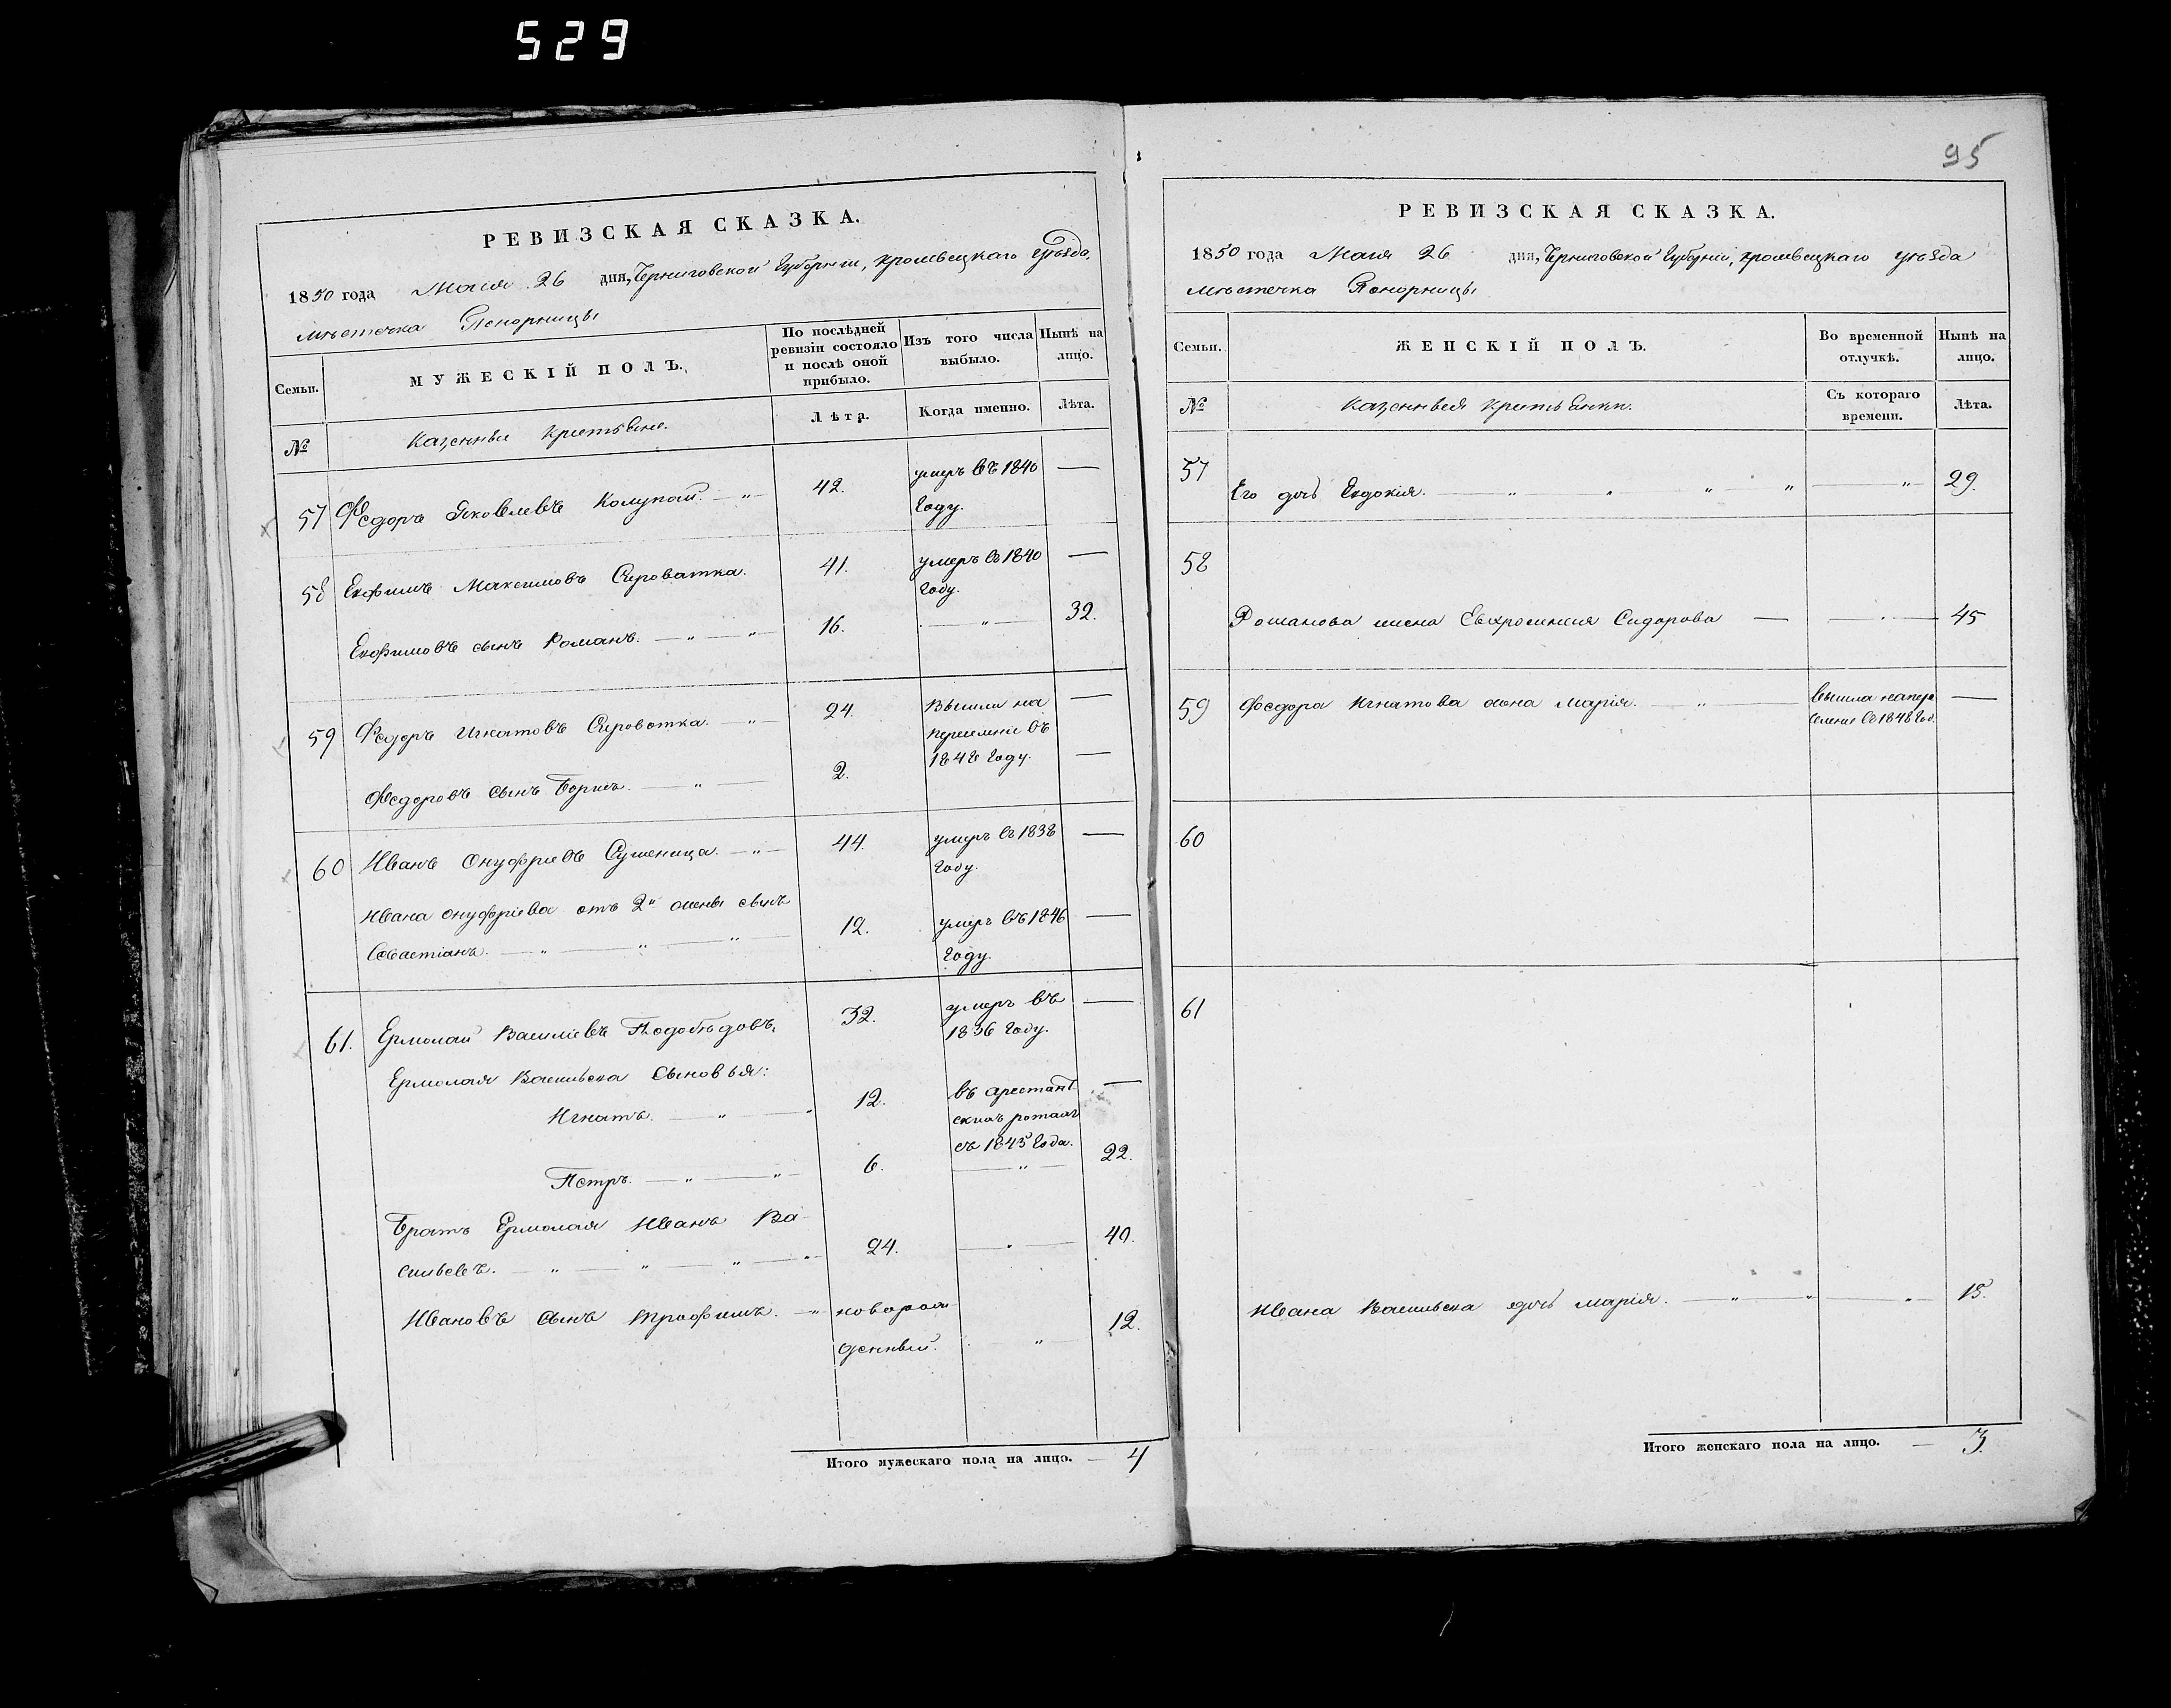 529
РЕВИЗСКАЯ СКАЗКА.
1850 года Маія 26 дня, Черниговской Губерніи, Кролевецкаго уѣзда,
мѣстечка Понорницы
Семьи.
МУЖЕСКІЙ ПОЛЪ.
По послѣдней
ревизіи состояло
и послѣ оной
прибыло.
Изъ того числа
выбыло.
Нынѣ на
лицо.
№
Казенные крестьяне.
Лѣта.
Когда именно.
Лѣта.
57 Федоръ Яковлевъ Колупай. — „ — 42. умеръ въ 1840 —
году.
58 Евфимъ Максимовъ Сыроватка. 41. умеръ въ 1840 —
году.
Евфимовъ сынъ Романъ. — „ — „ — 16. — „ — 32.
59 Федоръ Игнатовъ Сыроватка. — „ — 24. Вышли на —
переселеніе въ
1848 году.
Федоровъ сынъ Борисъ. — „ — 2. —
60 Иванъ Онуфріевъ Сушеница. — „ — 44. умеръ въ 1838 —
году.
Ивана Онуфріева отъ 2й жены сынъ
Севастіанъ. — „ — „ — „ — 12. умеръ въ 1846 —
году.
61. Ермолай Василіевъ Подобѣдовъ. 32. умеръ въ —
1836 году.
Ермолая Васильева сыновья:
Игнатъ. — „ — „ 12. въ арестант- —
скихъ ротахъ
съ 1845 года.
Петръ. — „ — „ — 6. — „ — 22.
Братъ Ермолая Иванъ Ва-
сильевъ. — „ — „ — „ — „ — 24. — „ — 40.
Ивановъ сынъ Трофимъ. — „ новорож-
денный. — „ — 12.
Итого мужескаго пола на лицо. — 4
95
РЕВИЗСКАЯ СКАЗКА.
1850 года Маія 26 дня, Черниговской Губерніи, Кролевецкаго уѣзда
мѣстечка Понорницы
Семьи.
ЖЕНСКІЙ ПОЛЪ.
Во временной
отлучкѣ.
Нынѣ на
лицо.
№
Казенныя крестьянки.
Съ котораго
времени.
Лѣта.
57 Его дочь Евдокія. — „ — „ — „ — „ — „ — 29.
58
Романова жена Евфросинія Сидорова — — „ — 45
59 Федора Игнатова жена Марія. — „ — Вышла на пере- —
селеніе въ 1848 год.
60
61
Ивана Васильева дочь Марія. — „ — „ — „ — 15.
Итого женскаго пола на лицо. — 3.